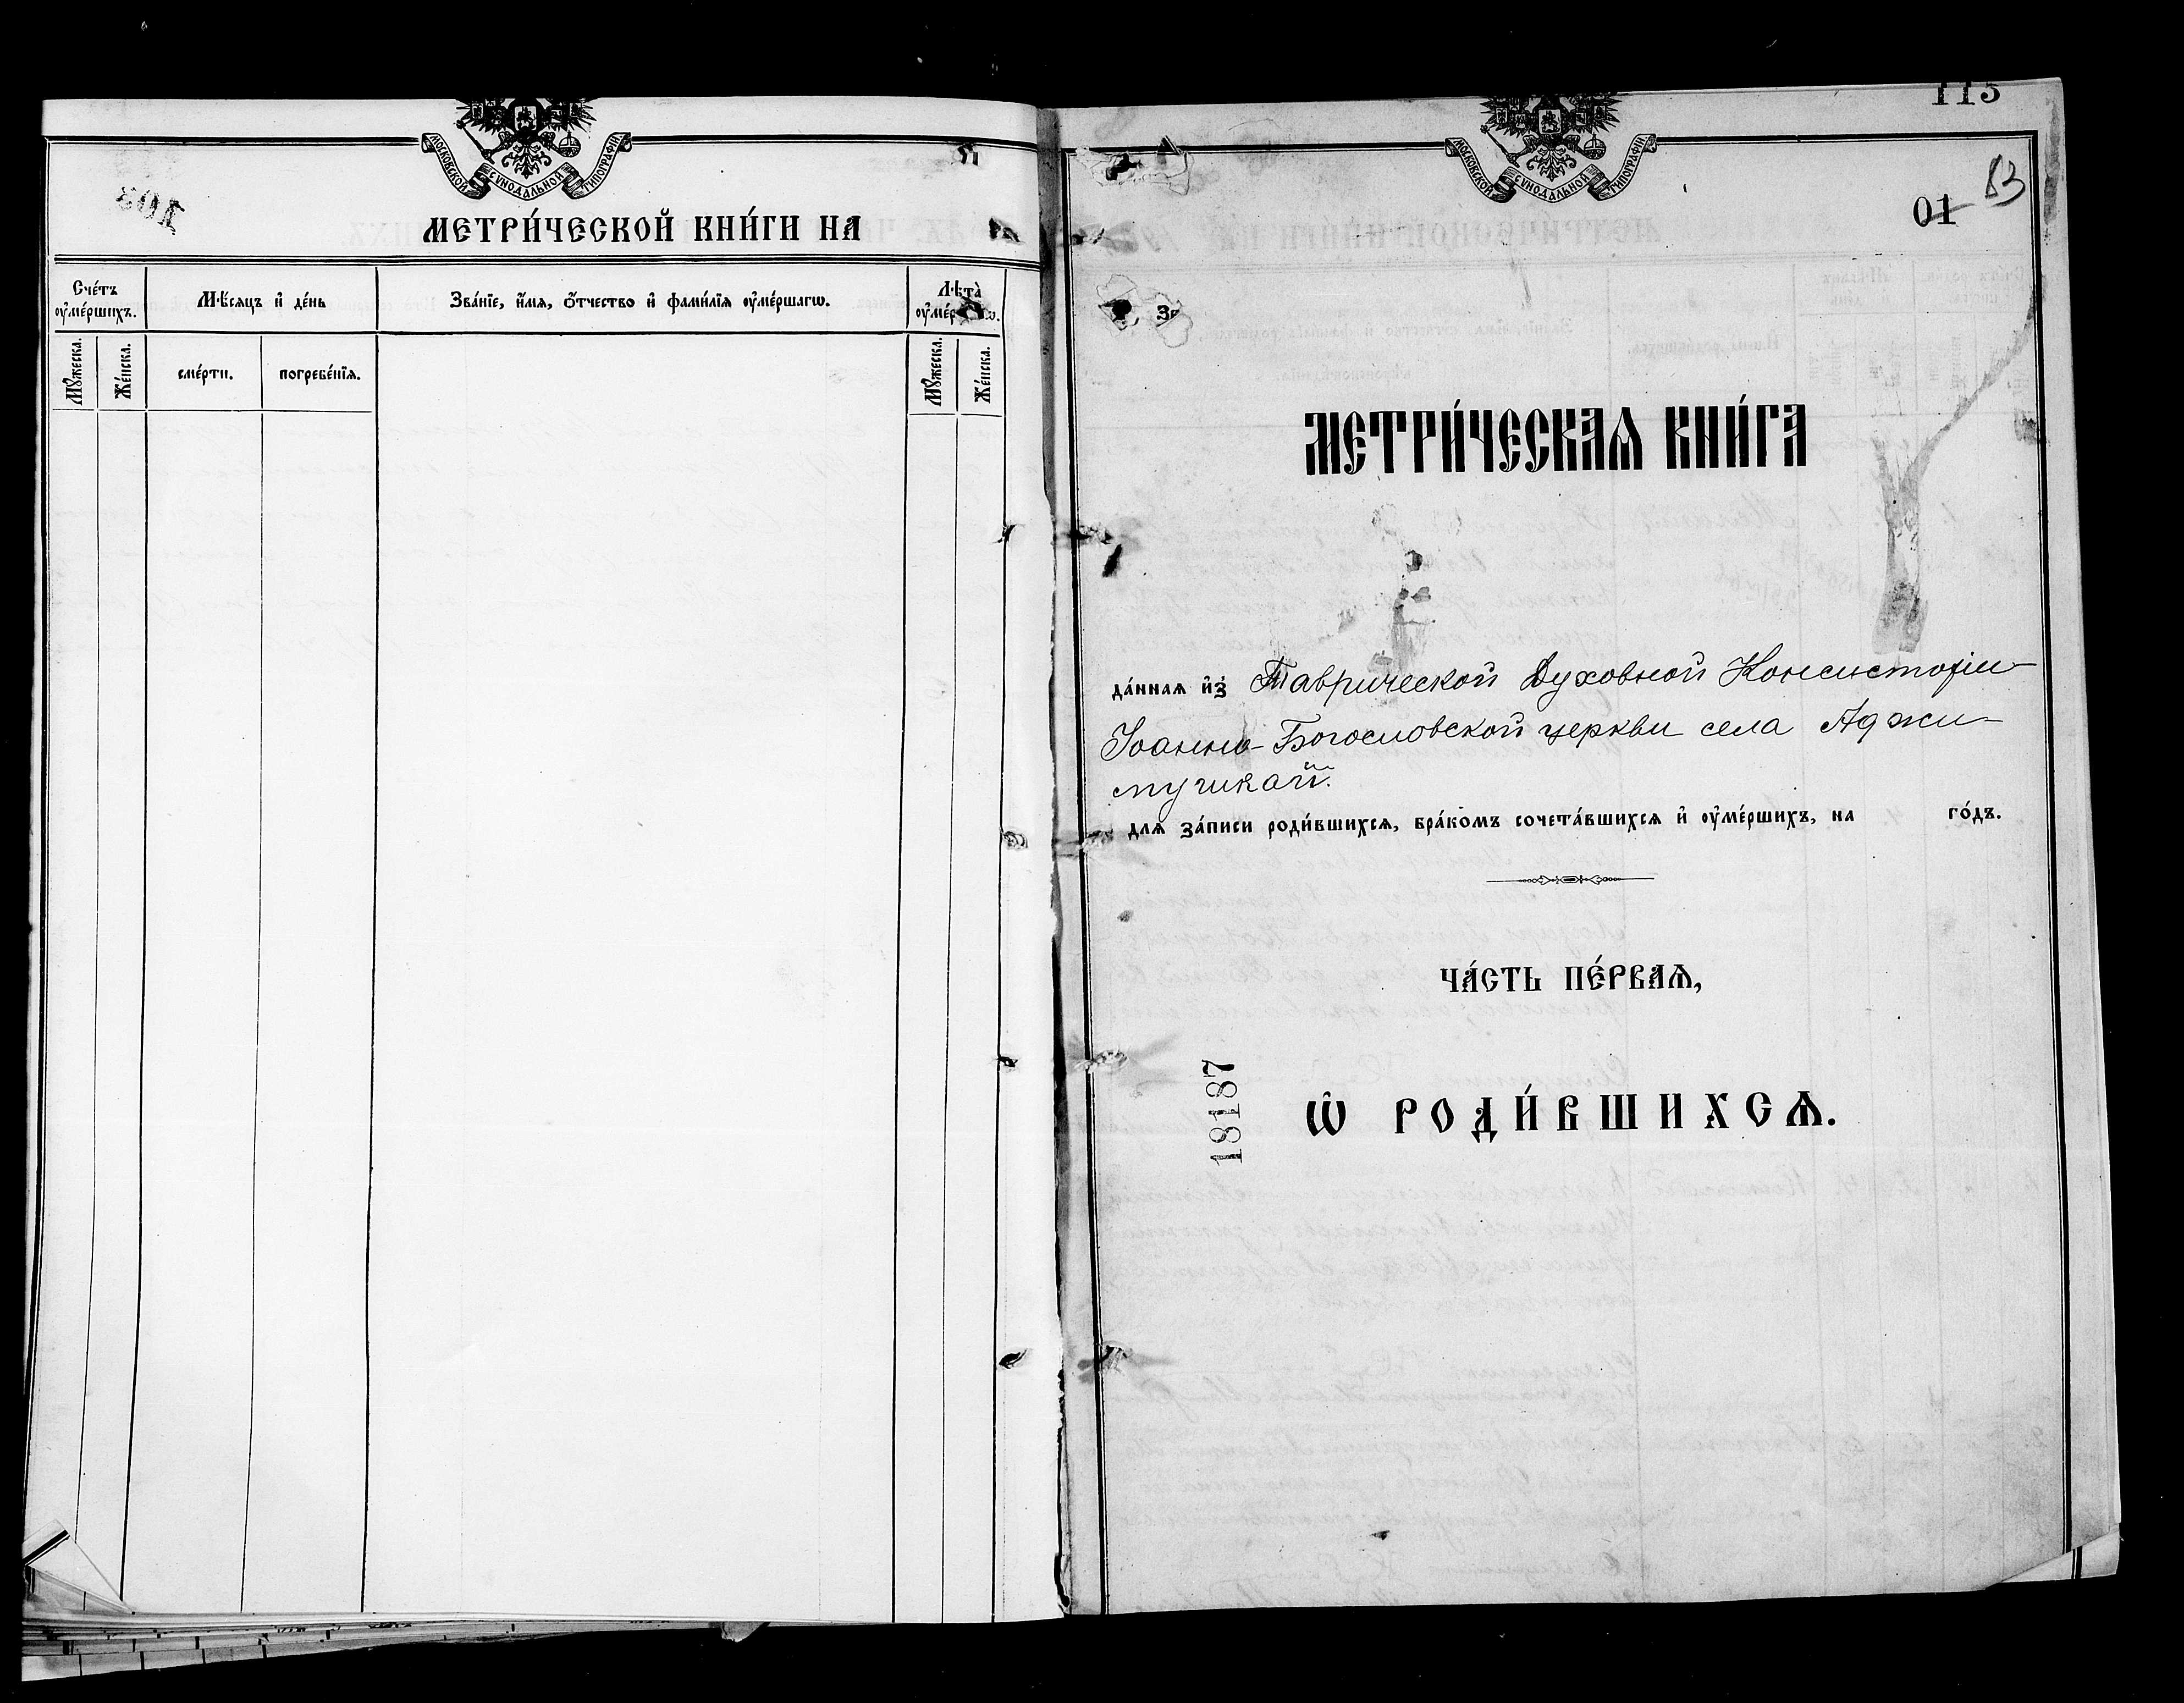 МОСКОВСКОЙ СѴНОДАЛЬНОЙ ТИПОГРАФІИ
МЕТРИ́ЧЕСКОЙ КНИ́ГИ НА
Сче́тъ ᲂу҆ме́ршихъ.
Мѣ́сяцъ и҆ де́нь
Зва́нїе, и҆́мѧ, ѻ҆́тчество и҆ фами́лїѧ ᲂу҆ме́ршагѡ.
Лѣта̀
Мꙋ́жеска.
Же́нска.
сме́рти.
погребе́нїѧ.
Мꙋ́жеска.
Же́нска.
103
113
МОСКОВСКОЙ СѴНОДАЛЬНОЙ ТИПОГРАФІИ
01
МЕТРИ́ЧЕСКАѦ КНИ́ГА
да́ннаѧ и҆з̾ Таврической Духовной Консисторіи
Іоанно-Богословской церкви села Аджи-
мушкай.
длѧ за́писи роди́вшихсѧ, бра́комъ сочета́вшихсѧ и҆ ᲂу҆ме́ршихъ, на го́дъ.
ЧА́СТЬ ПЕ́РВАѦ,
Ѡ҆ РОДИ́ВШИХСѦ.
18187